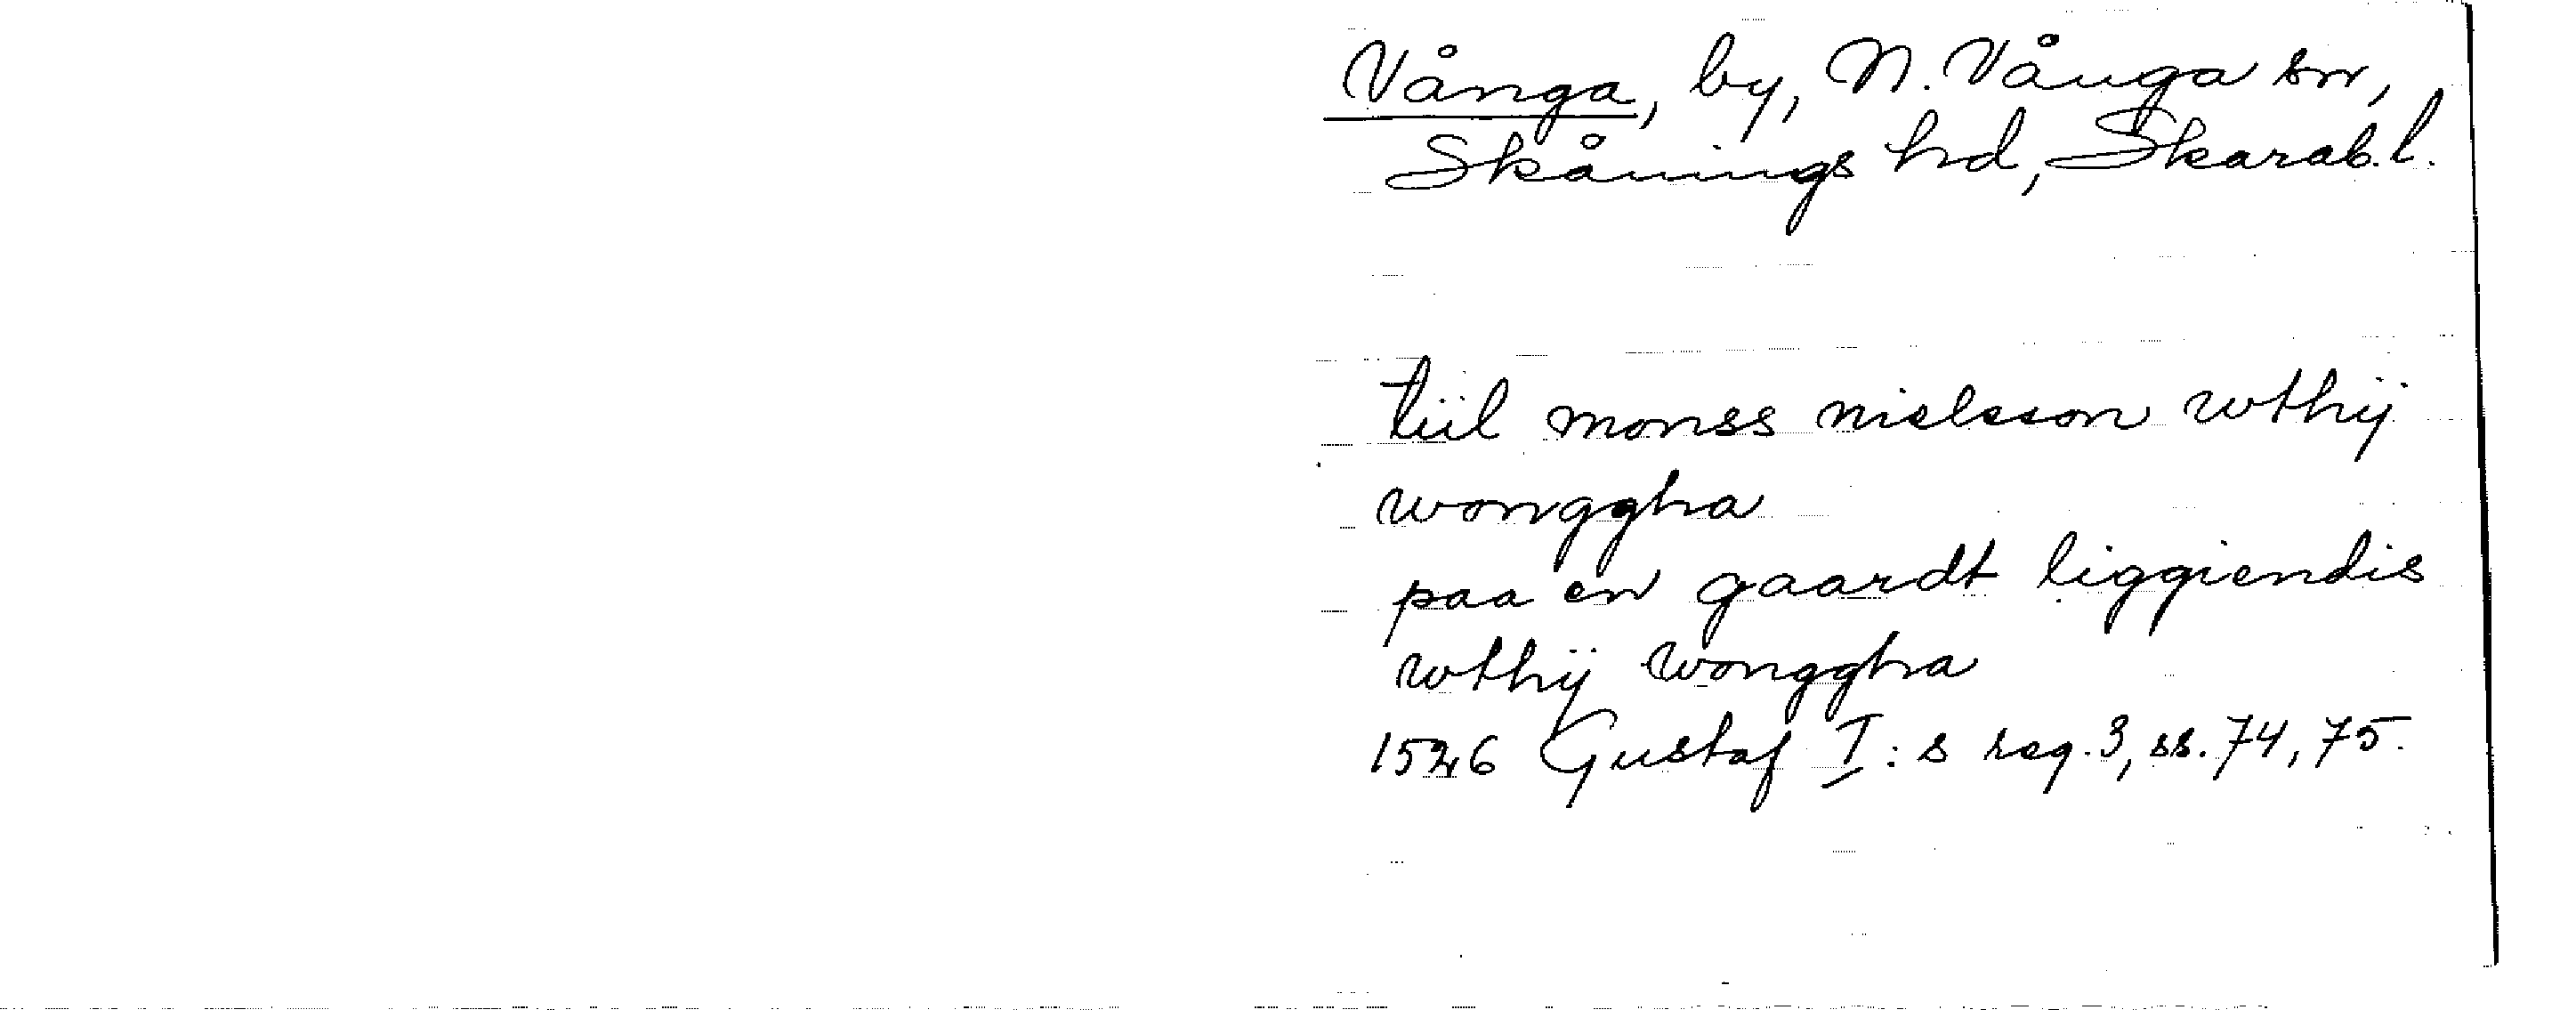 Vånga, by, N. Vånga sn,
Skånings hd, Skarab.l.
tiil monss nielsson wthij
wonggha
paa en gaardt liggiendis
wthij wonggha
1526 Gustaf I:s reg. 3, ss. 74, 75.